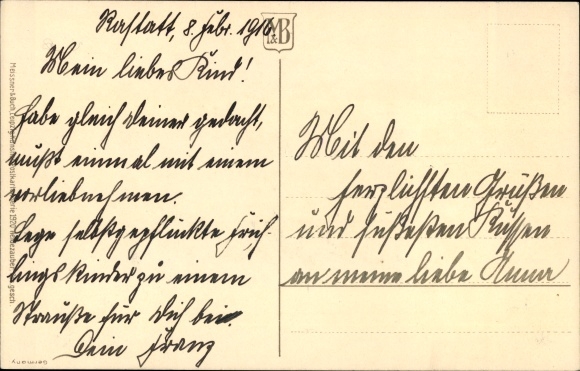 Rastatt, 8. Febr. 1916
Mein liebes Kind!
Habe gleich deiner gedacht,
mußt einmal mit einem
vorliebnehmen.
Lege selbstgepflückte Früh-
lingskinder zu einem
Strauße für Dich bei.
Dein Franz
M&B
Mit den
herzlichsten Grüßen
und süßesten Küssen
an meine liebe Anna
Meissner & Buch, Leipzig. Künstler-Postkarten Serie
gesch.
Germany